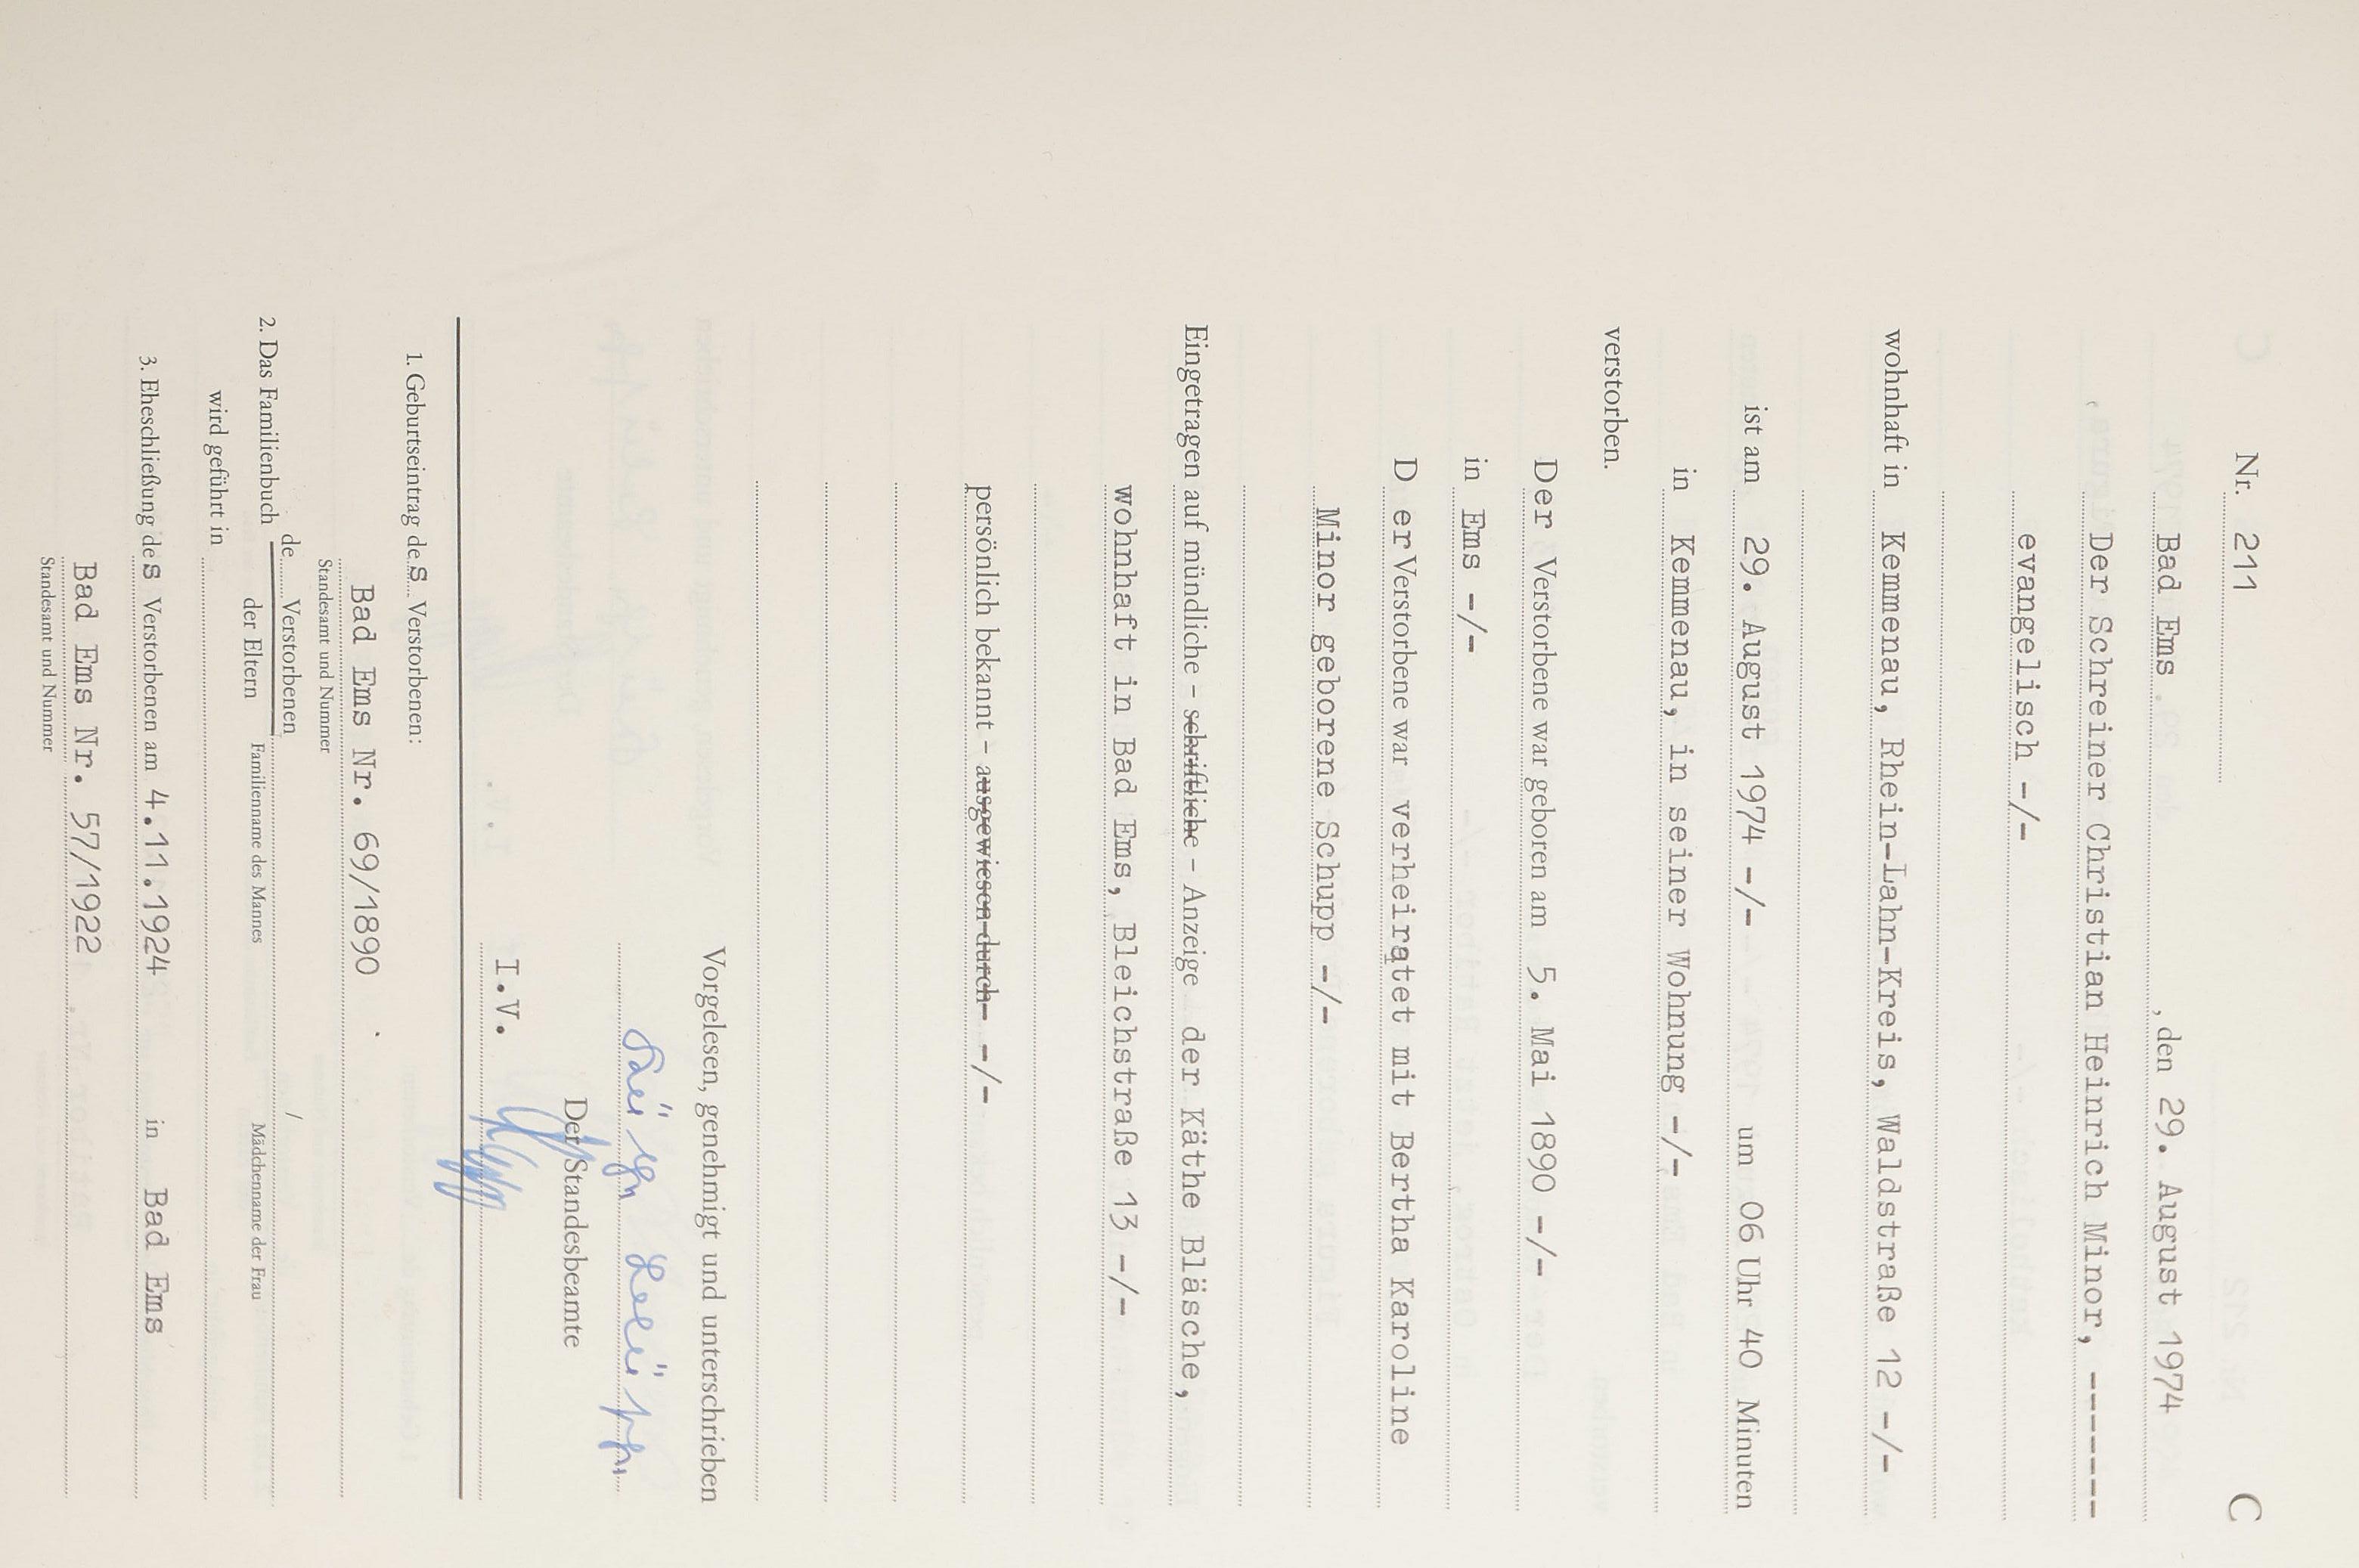 Nr. 211 C
Bad Ems , den 29. August 1974
Der Schreiner Christian Heinrich Minor, -------
evangelisch -/-
wohnhaft in Kemmenau, Rhein-Lahn-Kreis, Waldstraße 12 -/-
ist am 29. August 1974 -/- um 06 Uhr 40 Minuten
in Kemmenau, in seiner Wohnung -/-
verstorben.
Der Verstorbene war geboren am 5. Mai 1890 -/-
in Ems -/-
D er Verstorbene war verheiratet mit Bertha Karoline
Minor geborene Schupp -/-
Eingetragen auf mündliche - schriftliche - Anzeige der Käthe Bläsche,
wohnhaft in Bad Ems, Bleichstraße 13 -/-
persönlich bekannt - ausgewiesen durch- -/-
Vorgelesen, genehmigt und unterschrieben
Der Standesbeamte
I.V.
1. Geburtseintrag des Verstorbenen:
Bad Ems Nr. 69/1890
Standesamt und Nummer
2. Das Familienbuch de Verstorbenen /
der Eltern Familienname des Mannes Mädchenname der Frau
wird geführt in
3. Eheschließung des Verstorbenen am 4.11.1924 in Bad Ems
Bad Ems Nr. 57/1922
Standesamt und Nummer